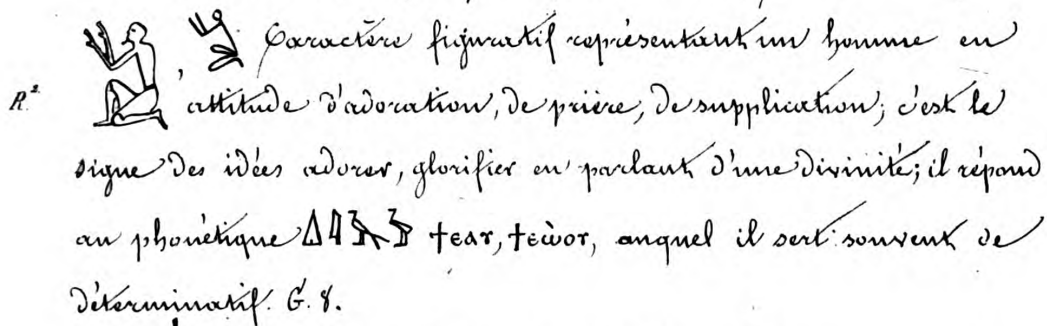 Caractère figuratif représentant un homme en
R². attitude d'adoration, de prière, de supplication; c'est le
signe des idées adorer, glorifier en parlant d'une divinité; il répond
au phonétique ϯⲉⲁⲩ, ϯⲉⲱⲟⲩ, auquel il sert souvent de
déterminatif. G. 8.